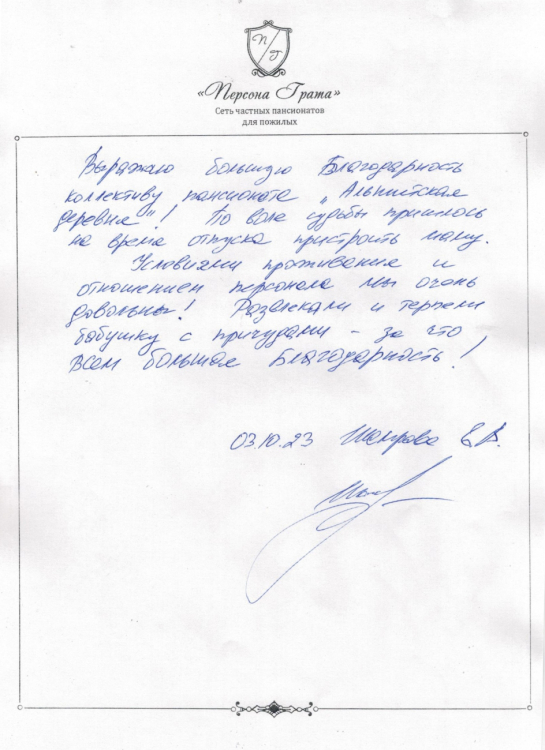 П/Г
«Персона Грата»
Сеть частных пансионатов
для пожилых
Выражаю большую Благодарность
коллективу пансионата „Альпийская
деревня"! По воле судьбы пришлось
на время отпуска пристроить маму.
Условиями проживания и
отношением персонала мы очень
довольны! Развлекали и терпели
бабушку с причудами – за что
Всем большая Благодарность!
03.10.23 Е.В.